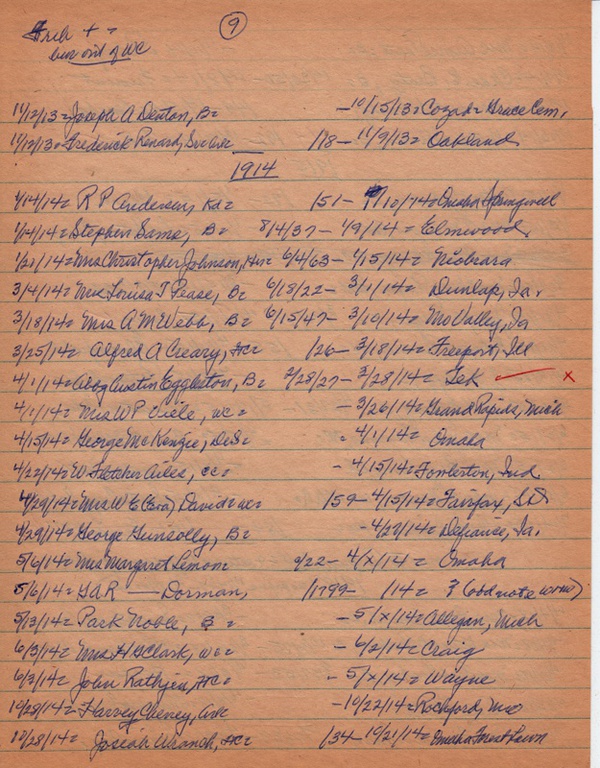 9
but out of WC
11/12/13= Joseph A Denton, B= -10/15/13= Cozad= Grace Cem.
11/12/13= Frederick Renard, /18- 11/9/13= Oakland
1914
1/14/14= R P Anderson, Kd= /51- 1/10/14= Omaha Springwell
1/14/14= Stephen Sams, B= 8/4/37- 1/9/14= Elmwood,
1/21/14= Mrs Christopher Johnson, 6/4/63- 1/15/14= Niobrara
3/4/14= Mrs Louisa T Pease, B= 6/18/22- 3/1/14= Dunlap, Ia.
3/18/14= Mrs A M Webb, B= 6/15/47- 3/10/14= Mo Valley, Ia
3/25/14= Alfred A Creary, HC= /26- 3/18/14= Freeport, Ill
4/1/14= Austin Eggleston, B= 2/28/27- 3/28/14= Tek x
4/1/14= Mrs W P Viele, WC= -3/26/14= Grand Rapids, Mich
4/15/14= George McKenzie, DeS= - 4/1/14= Omaha
4/22/14= W Fletcher Ailes, CC= -4/15/14= Ind
4/29/14= Mrs W E (Cora) David= WC= /59- 4/15/14= Fairfax, SD
4/29/14= George Gunsolly, B= -4/27/14= Defiance, Ia.
5/6/14= Mrs Margaret Lemon= 9/22- 4/x/14= Omaha
5/6/14= GAR — Dorman, /1799- /14= ? (odd note WMW)
5/13/14= Park Noble, B= -5/x/14= Allegan, Mich
6/3/14= Mrs H G Clark, WC= -6/2/14= Craig
6/3/14= John Rathjen, HC= -5/x/14= Wayne
10/28/14= Harvey Cheney, -10/22/14= Rockford,
10/28/14= Josiah HC= /34- 10/21/14= Omaha Forest Lawn